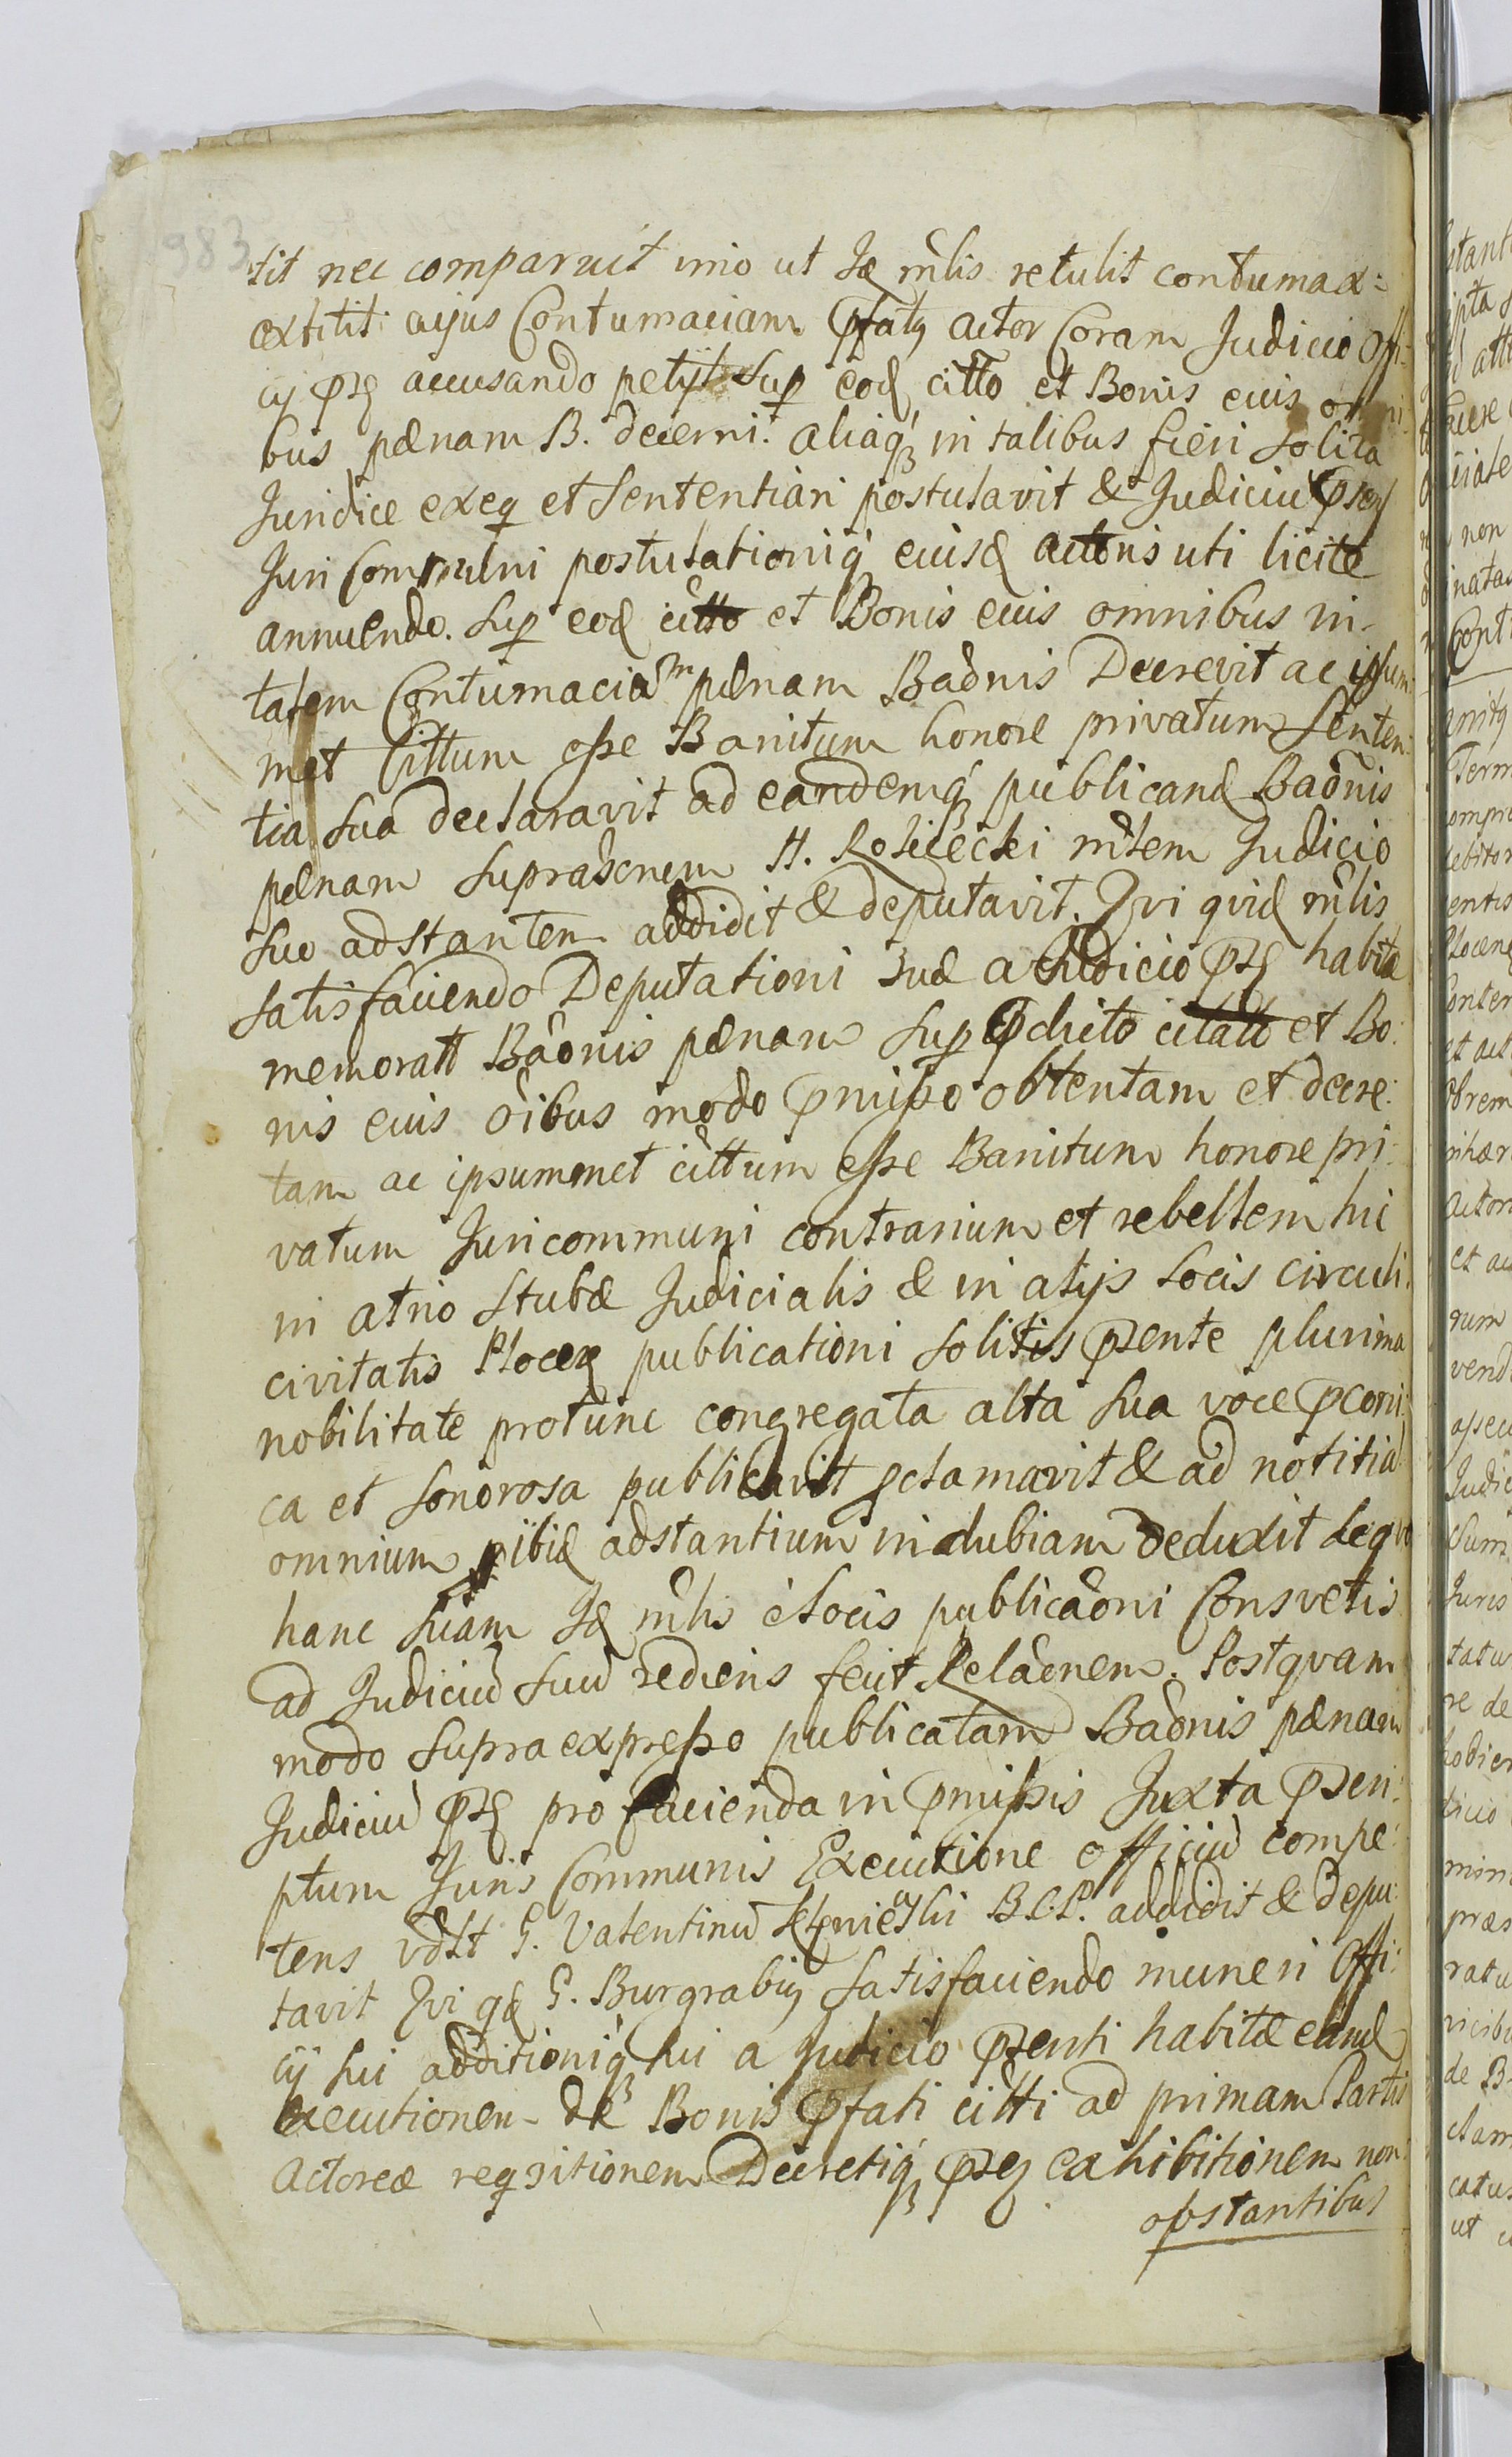 983
tit nec comparuit imo ut Idē mlis retulit contumax
extitit: cujus Contumaciam pfatq actor Coram Judicio Offi:
cij psē accusando petijt Sup eod citto et Bonis eius omni
bus pœnam B. decerni. aliaq in talibus fieri solita
Juridice exeq et Sententiari postulavit & Judiciū psens
Juri Communi postulationiq eiusd actoris uti licite
annuendo. Sup eod citto et Bonis eius omnibus in
talem Contumaciam pœnam Baonis Decrevit ac ipsum
met Cittum esse Banitum honore privatum Senten:
tia sua declaravit ad eandemq publicand Baonis
pœnam suprascnem H. Rościecki mlem Judicio
suo adstantem addidit & deputavit. Qvi qvid mlis
satisfaciendo Deputationi suæ a Judicio psē habitæ
memoratt Baonis pœnam sup pdicto citato et Bo:
nis eius oibus modo pmisso obtentam et decre:
tam ac ipsummet cittum esse Banitum honore pri:
vatum Juricommuni contrarium et rebellem hic
in atrio Stubæ Judicialis & in alijs locis circuli
civitatis Plocē publicationi solitis psente plurima
nobilitate protunc congregata alta sua voce pconi:
ca et sonorosa publicavit pclamavit & ad notitiā
omnium ibid adstantium indubiam deduxit deqve
hanc suam Id mlis è locis publicaoni Consvetis
ad Judiciū suū rediens fecit Relaonem. Postqvam
modo supra expresso publicatam Baonis pœnam
Judiciū psē pro facienda in pmissis Juxta pscri:
ptum Juris Communis Executione officiū compe:
tens vdlt G. Valentinū B.C.P. addidit & depu:
tavit Qvi qd G. Burgrabiq satisfaciendo muneri Offi:
cij sui additioniq sui a Judicio psenti habitæ eand
executionem de Bonis pfati citti ad primam Partis
Actoreæ reqsitionem Decretiq psē exhibitionem non
obstantibus